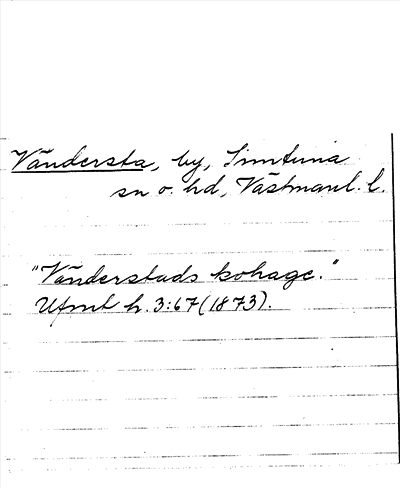 Vändersta, by, Simtuna
sn o. hd, Västmanl. l.
"Vänderstads kohage."
Ufmt h. 3:67 (1873).